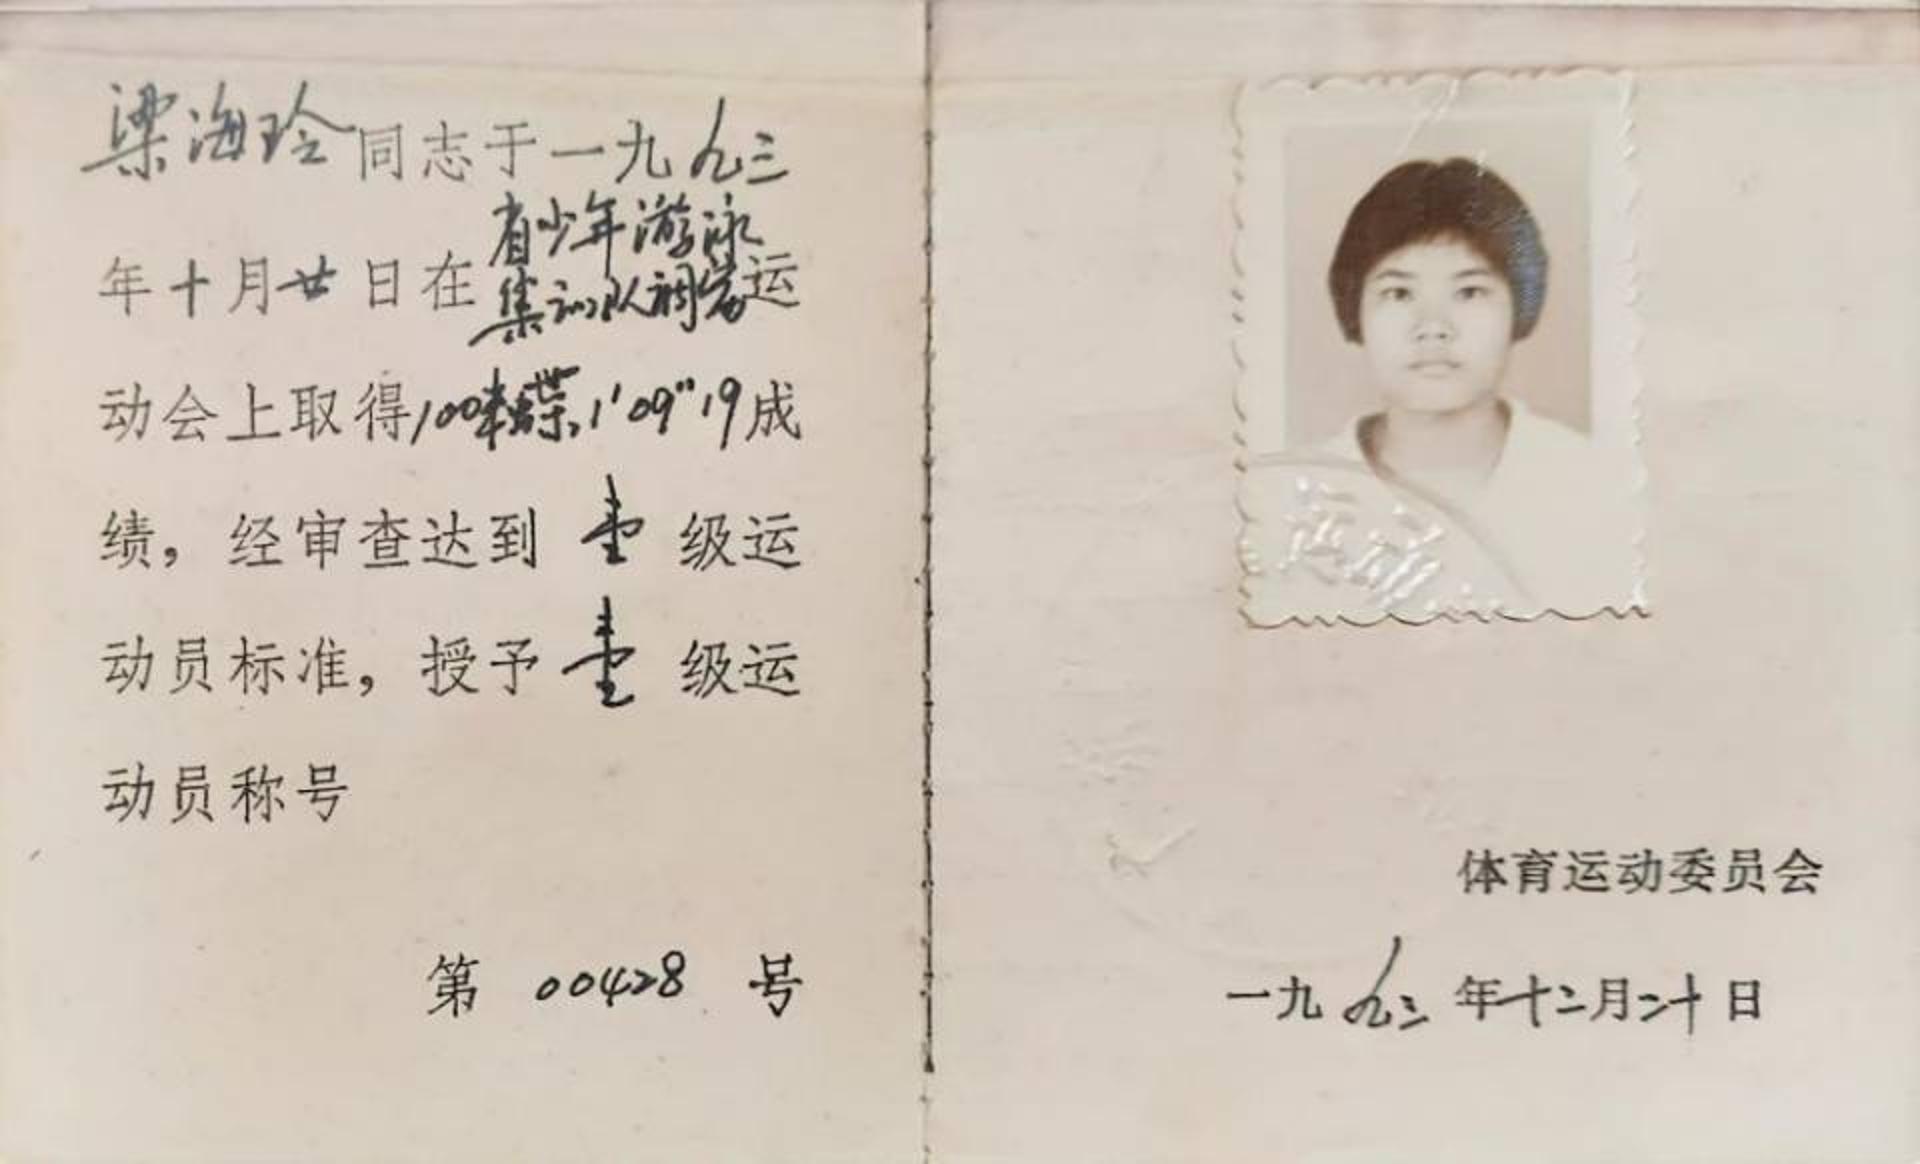 梁海玲同志于一九九三
年十月廿日在省少年游泳
集训队调赛运
动会上取得100米蝶,1'09"19成
绩，经审查达到壹级运
动员标准，授予壹级运
动员称号
第 00428 号
体育运动委员会
一九九三年十二月二十日